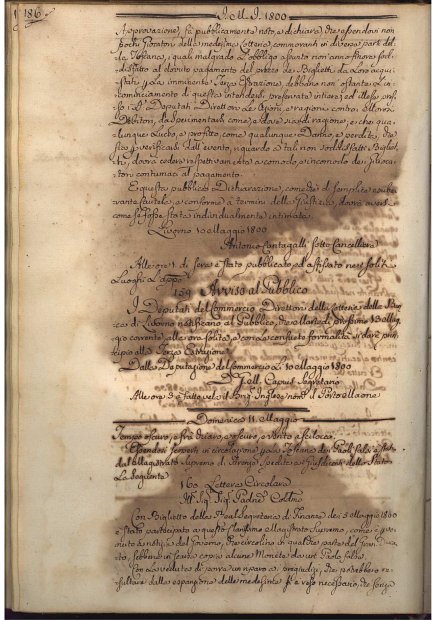 186
I. M. I. 1800
Approvazione, fà pubblicamente noto, e dichiara, che essendovi non
pochi Giocatori della medesima Lotteria, commoranti in diverse parti del-
la Toscana, i quali malgrado l'obbligo assunto non anno finora sod-
disfatto al dovuto pagamento del prezzo de Biglietti da loro acqui-
stati per la imminente Terza Estrazione, debbano non ostante l'in-
cominciamento di questa intendersi preservate intere, ed illese pres-
so i Deputati Direttori le azioni, e ragioni contro i Morosi
Debitori, da sperimentarsi come, e dove sarà di ragione, e che qua-
lunque Lucro, e profitto, come qualunque Danno, e perdita, che
si verificasse dall'evento, riguardo a tali non soddisfatti Bigliet-
ti, dovrà cedere respettivamente a comodo, e incomodo dei Giuoca-
tori contumaci al pagamento.
E questa pubblica Dichiarazione, come che di semplice
cautela, e conforme a termini della Giustizia, dovrà aversi
come se fosse stata individualmente intimata.
Livorno 10 Maggio 1800
Antonio Cantagalli Sotto Cancelliere
Alle ore 1. di sera è stato pubblicato, ed affissato nei soliti
Luoghi
159 Avviso al Pubblico
I Deputati del Commercio Direttori della Lotteria della
di Livorno notificano al Pubblico, che Martedì prossimo 13 Mag-
gio corrente alle ore solite, e con le consuete formalità si darà prin-
cipio alla Terza Estrazione
Dalla Deputazione del Commercio Li 10 Maggio 1800
G. M. Segretario
Alle ore 3 è fatto vela il Brig. Inglese nom. il Porto Maone
Domenica 11. Maggio
Tempo oscuro, e frà chiaro, e oscuro, e vento a Scilocco.
Essendosi sparsa in circolazione per la Toscana dei Paoli falsi, è stata
dal Magistrato Supremo di Firenze spedita ai Giusdicenti dello Stato
La seguente
160 Lettera Circolare
Sig. Sig. Padne. Colmo
Con Biglietto della Real Segreteria di Finanze de i 5 Maggio 1800
è stato partecipato a questo Clarissimo Magistrato Supremo, come è per-
venuto a notizia del Governo, che circolino in qualche parte del Gran Duca-
to, sebbene in scarsa copia alcune Monete da un Paolo false.
Con la veduta di porre un riparo a pregiudizi, che potrebbero re-
sultare dalla espansione delle medesime si è reso necessario, che senza